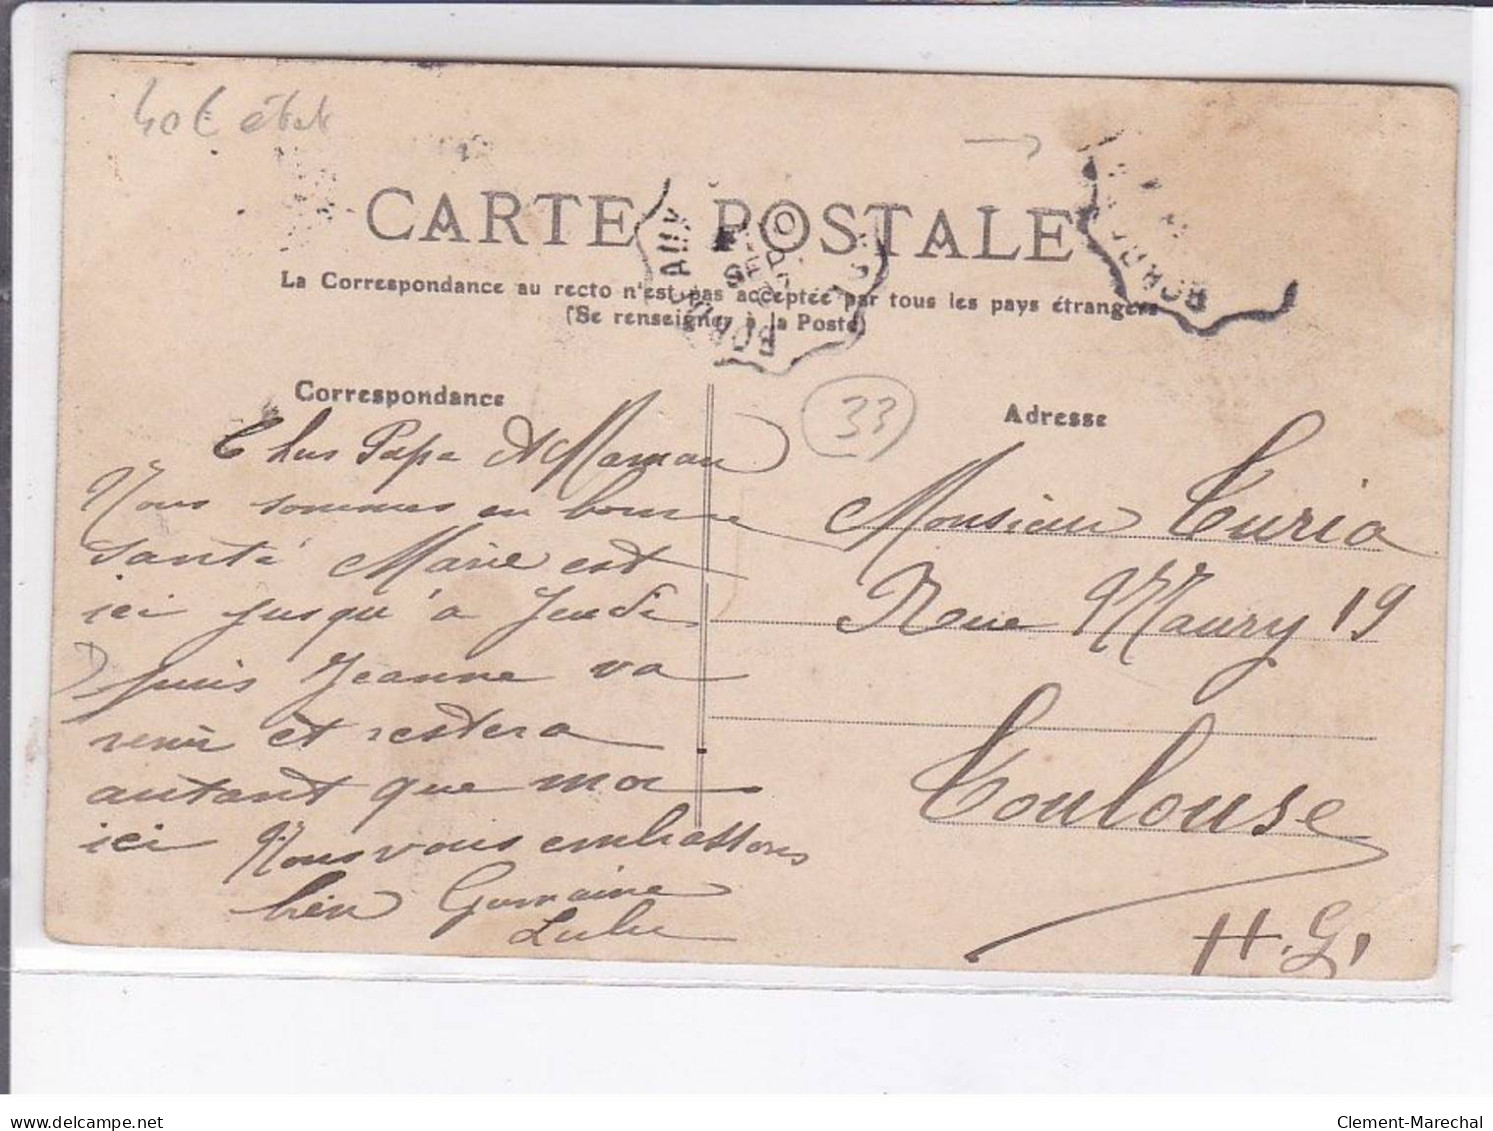 40€ état
CARTE POSTALE
La Correspondance au recto n'est pas acceptée par tous les pays étrangers
(Se renseigner à la Poste)
BORDEAUX
BORD
Correspondance
33
Adresse
Chers Papa et Maman
Nous sommes en bonne
santé Marie est
ici jusqu'à Jeudi
puis Jeanne va
venir et restera
autant que moi
ici Nous vous embrassons
bien Germaine
Lulu
Monsieur Curia
Rue Maury 19
Toulouse
H. G.
delcampe.net
Clement-Marechal